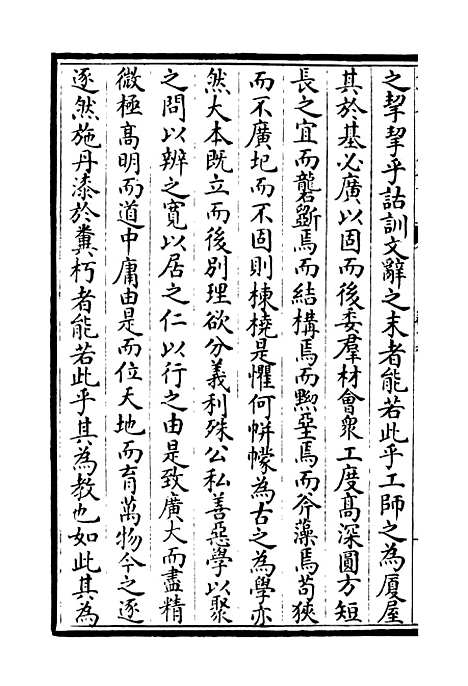 之挈挈乎詁訓文辭之末者能若此乎工師之為厦屋
其於基必廣以固而後委羣材會衆工度髙深圓方短
長之宜而礱斵焉而結構焉而黝堊焉而斧藻焉茍狹
而不廣圮而不固則棟橈是懼何帡幪為古之為學亦
然大本既立而後別理欲分義利殊公私善惡學以聚
之問以辨之寛以居之仁以行之由是致廣大而盡精
微極髙明而道中庸由是而位天地而育萬物今之逐
逐然施丹漆於糞朽者能若此乎其為教也如此其為